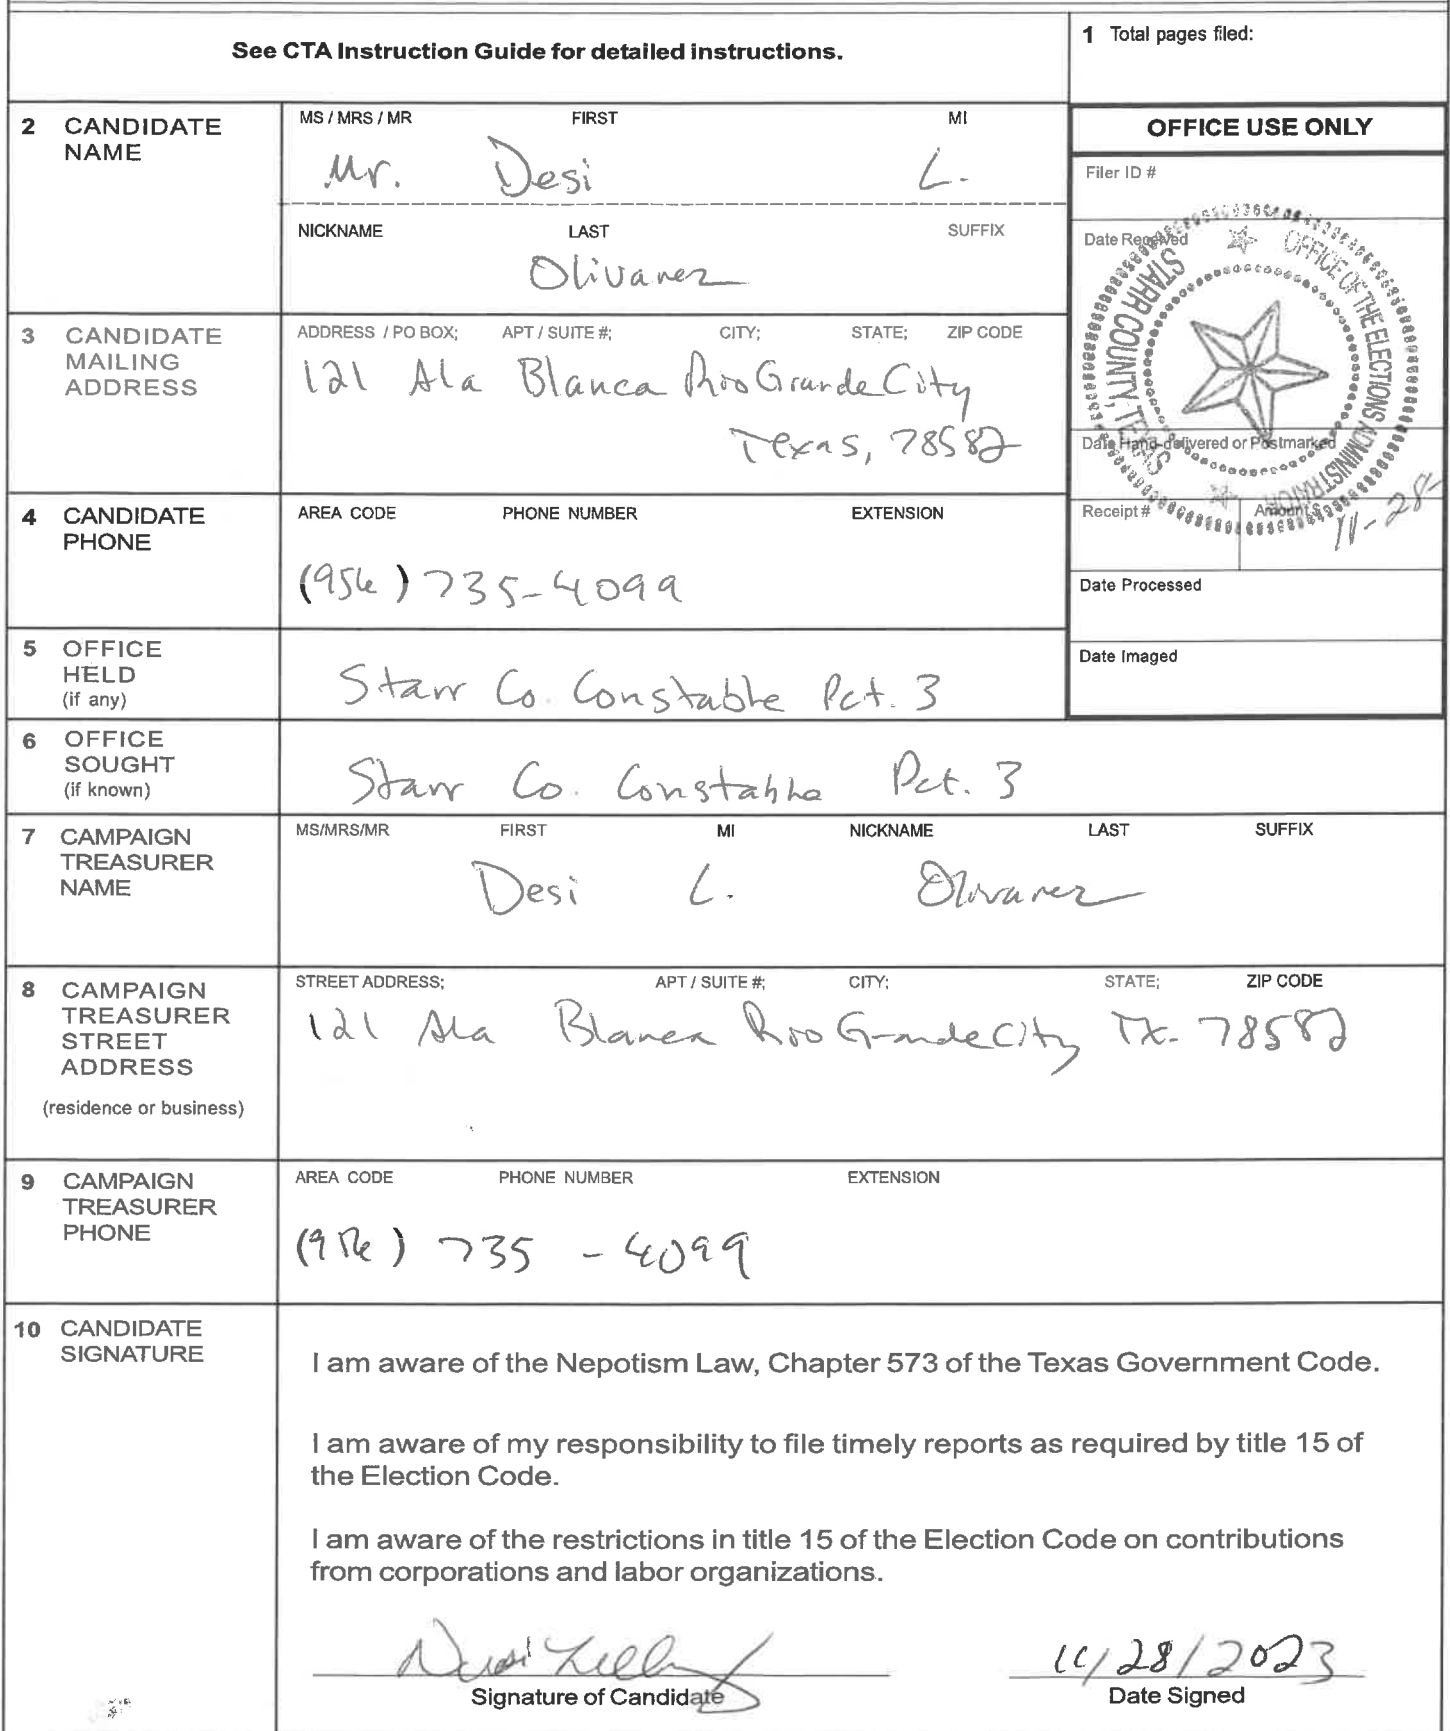 See CTA Instruction Guide for detailed instructions.
1 Total pages filed:
2 CANDIDATE NAME
MS / MRS / MR FIRST MI
Mr. Desi L.
NICKNAME LAST SUFFIX
Olivarez
OFFICE USE ONLY
Filer ID #
Date Received
OFFICE OF THE ELECTIONS ADMINISTRATOR
STARR COUNTY, TEXAS
Date Hand-delivered or Postmarked
Receipt # Amount $
11-28-
Date Processed
Date Imaged
3 CANDIDATE MAILING ADDRESS
ADDRESS / PO BOX; APT / SUITE #; CITY; STATE; ZIP CODE
121 Ala Blanca Rio Grande City
Texas, 78582
4 CANDIDATE PHONE
AREA CODE PHONE NUMBER EXTENSION
(956) 735-4099
5 OFFICE HELD (if any)
Starr Co. Constable Pct. 3
6 OFFICE SOUGHT (if known)
Starr Co. Constable Pct. 3
7 CAMPAIGN TREASURER NAME
MS/MRS/MR FIRST MI NICKNAME LAST SUFFIX
Desi L. Olivarez
8 CAMPAIGN TREASURER STREET ADDRESS
(residence or business)
STREET ADDRESS; APT / SUITE #; CITY; STATE; ZIP CODE
121 Ala Blanca Rio Grande City TX. 78582
9 CAMPAIGN TREASURER PHONE
AREA CODE PHONE NUMBER EXTENSION
(956) 735 - 4099
10 CANDIDATE SIGNATURE
I am aware of the Nepotism Law, Chapter 573 of the Texas Government Code.
I am aware of my responsibility to file timely reports as required by title 15 of
the Election Code.
I am aware of the restrictions in title 15 of the Election Code on contributions
from corporations and labor organizations.
11/28/2023
Signature of Candidate Date Signed